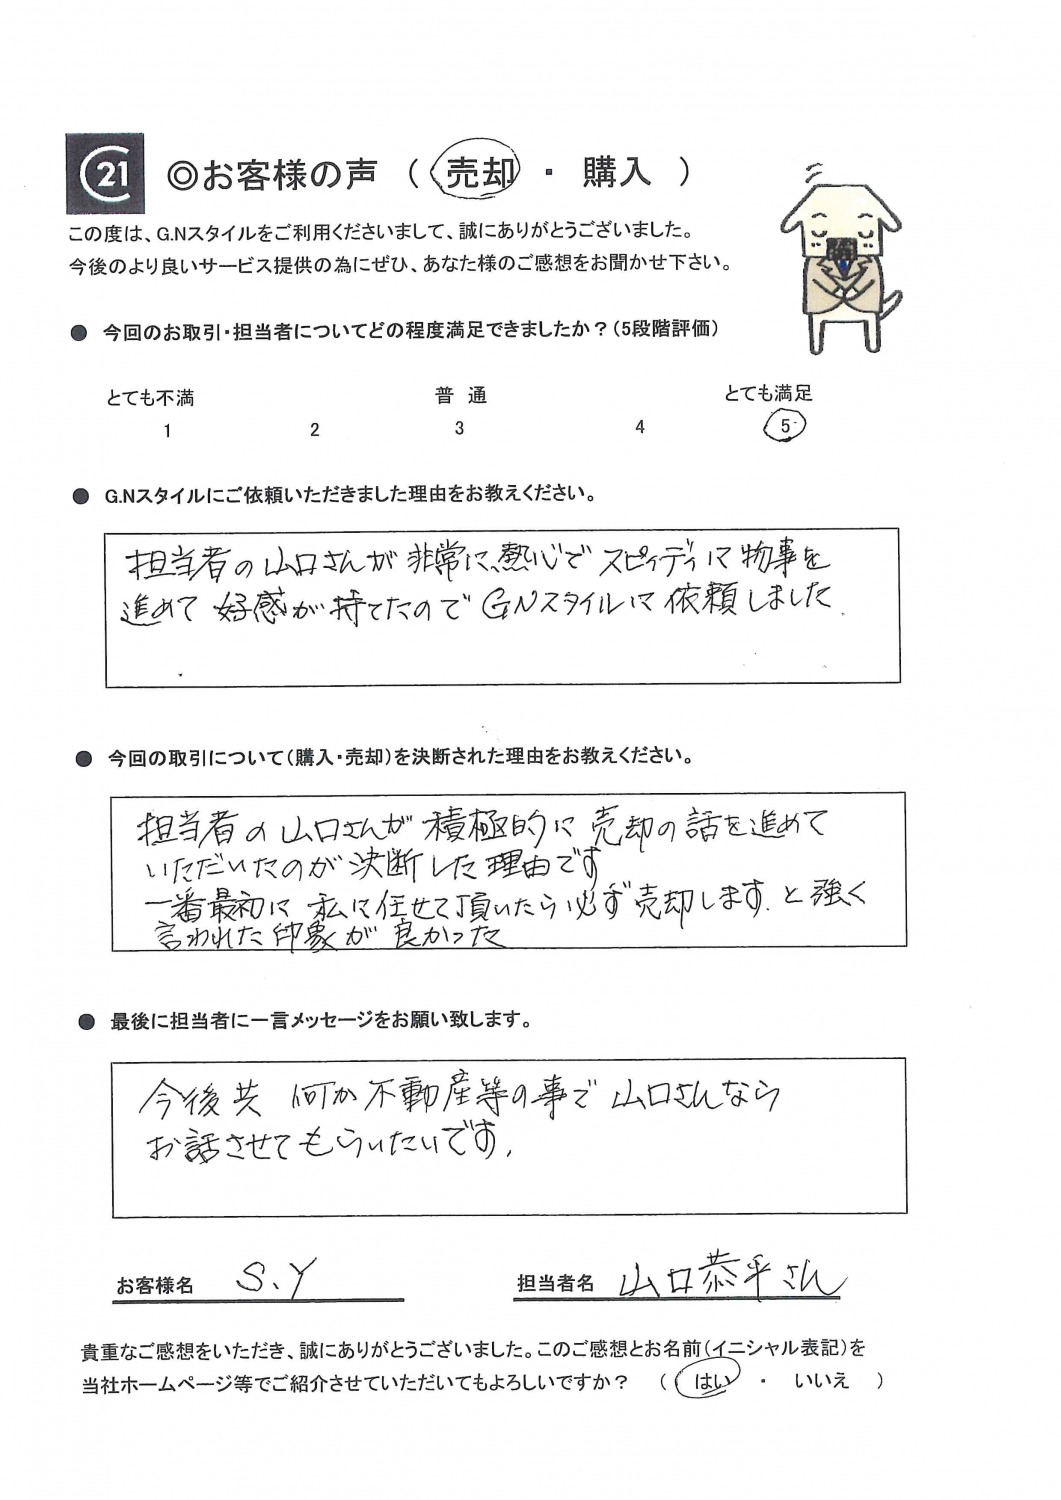 C21 ◎お客様の声 ( 売却 ・ 購入 )
この度は、G.Nスタイルをご利用くださいまして、誠にありがとうございました。
今後のより良いサービス提供の為にぜひ、あなた様のご感想をお聞かせ下さい。
● 今回のお取引・担当者についてどの程度満足できましたか？(5段階評価)
とても不満 普 通 とても満足
1 2 3 4 5
● G.Nスタイルにご依頼いただきました理由をお教えください。
担当者の山口さんが非常に、熱心でスピィディに物事を
進めて好感が持てたのでGNスタイルに依頼しました.
● 今回の取引について(購入・売却)を決断された理由をお教えください。
担当者の山口さんが積極的に売却の話を進めて
いただいたのが決断した理由です
一番最初に私に任せて頂いたら必ず売却します.と強く
言われた印象が良かった
● 最後に担当者に一言メッセージをお願い致します。
今後共 何か不動産等の事で山口さんなら
お話させてもらいたいです.
お客様名 S.Y 担当者名 山口恭平さん
貴重なご感想をいただき、誠にありがとうございました。このご感想とお名前(イニシャル表記)を
当社ホームページ等でご紹介させていただいてもよろしいですか？ ( はい ・ いいえ )